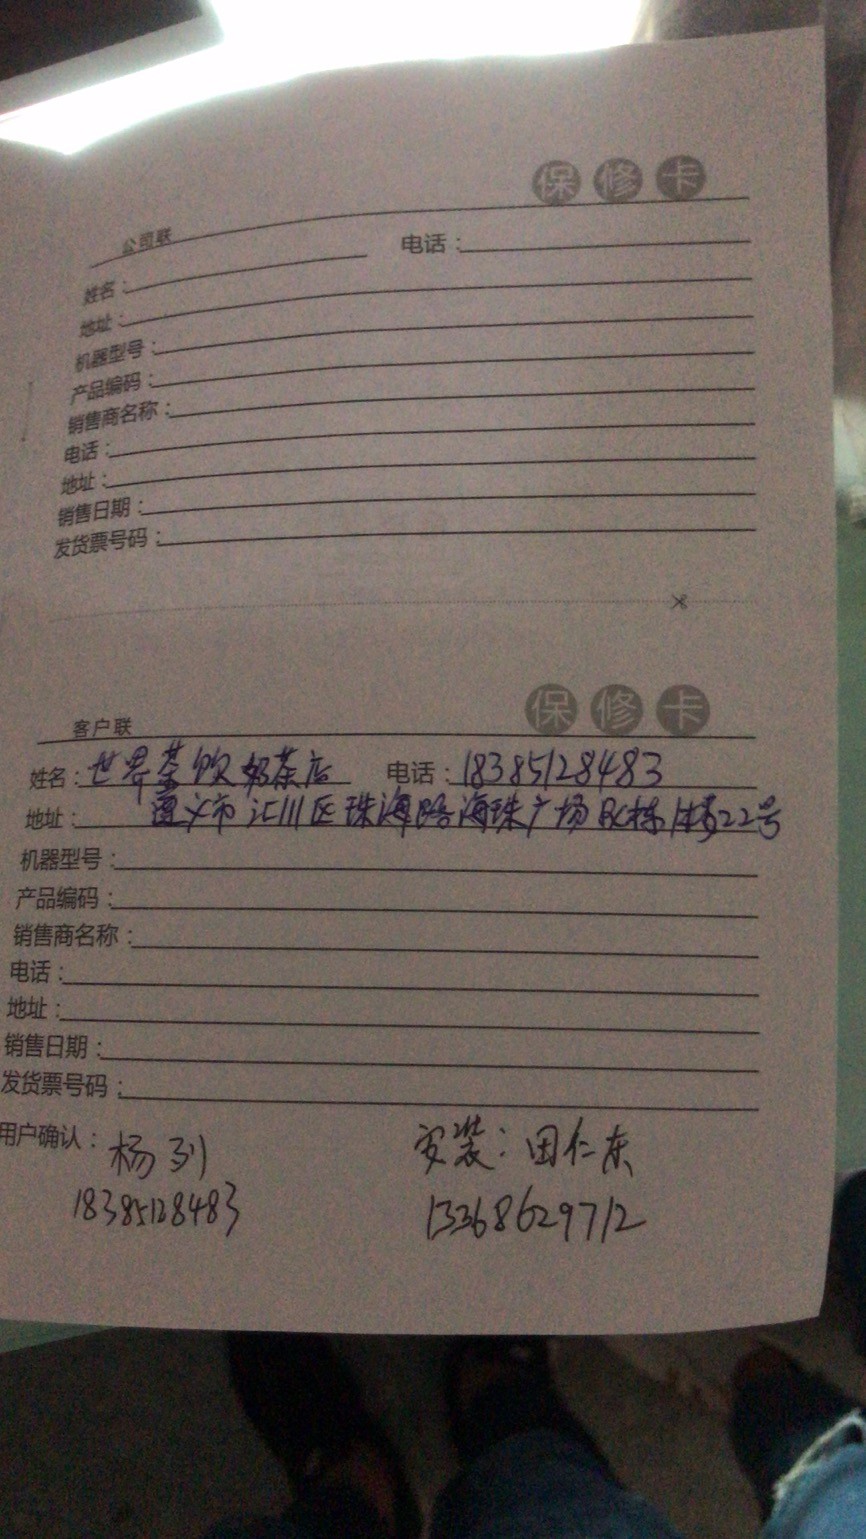 保修卡
公司联
姓名： 电话：
地址：
机器型号：
产品编码：
销售商名称：
电话：
地址：
销售日期：
发货票号码：
保修卡
客户联
姓名：世界茶饮奶茶店 电话：18385128483
地址：遵义市汇川区珠海路海珠广场 栋1楼22号
机器型号：
产品编码：
销售商名称：
电话：
地址：
销售日期：
发货票号码：
用户确认：杨列 安装：田仁东
18385128483 13368629712